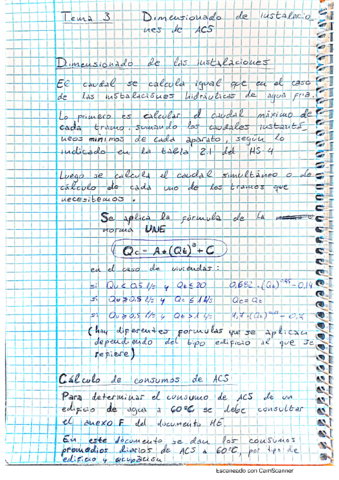 Tema 3 Dimensionado de instalacio
nes de ACS
Dimensionado de las instalaciones
El caudal se calcula igual que en el caso
de las instalaciones hidráulicas de agua fría.
Lo primero es calcular el caudal máximo de
cada tramo, sumando los caudales instantá
neos mínimos de cada aparato, según lo
indicado en la tabla 2.1 del HS 4
Luego se calcula el caudal simultáneo o de
cálculo de cada uno de los tramos que
necesitemos.
Se aplica la fórmula de la
norma UNE
Qc = A * (Qt)^B + C
en el caso de viviendas:
si Qu < 0,5 l/s y Qt ≤ 20
si Qu ≥ 0,5 l/s y Qt ≤ 1 l/s Qc = Qt
si Qu ≥ 0,5 l/s y
(hay diferentes formulas que se aplican
dependiendo del tipo edificio al que se
refiere)
Cálculo de consumos de ACS
Para determinar el consumo de ACS de un
edificio de agua a 60°C se debe consultar
el anexo F del documento HE.
En este documento se dan los consumos
promedios diarios de ACS a 60°C, por tipo de
edificio y ocupación
Escaneado con CamScanner